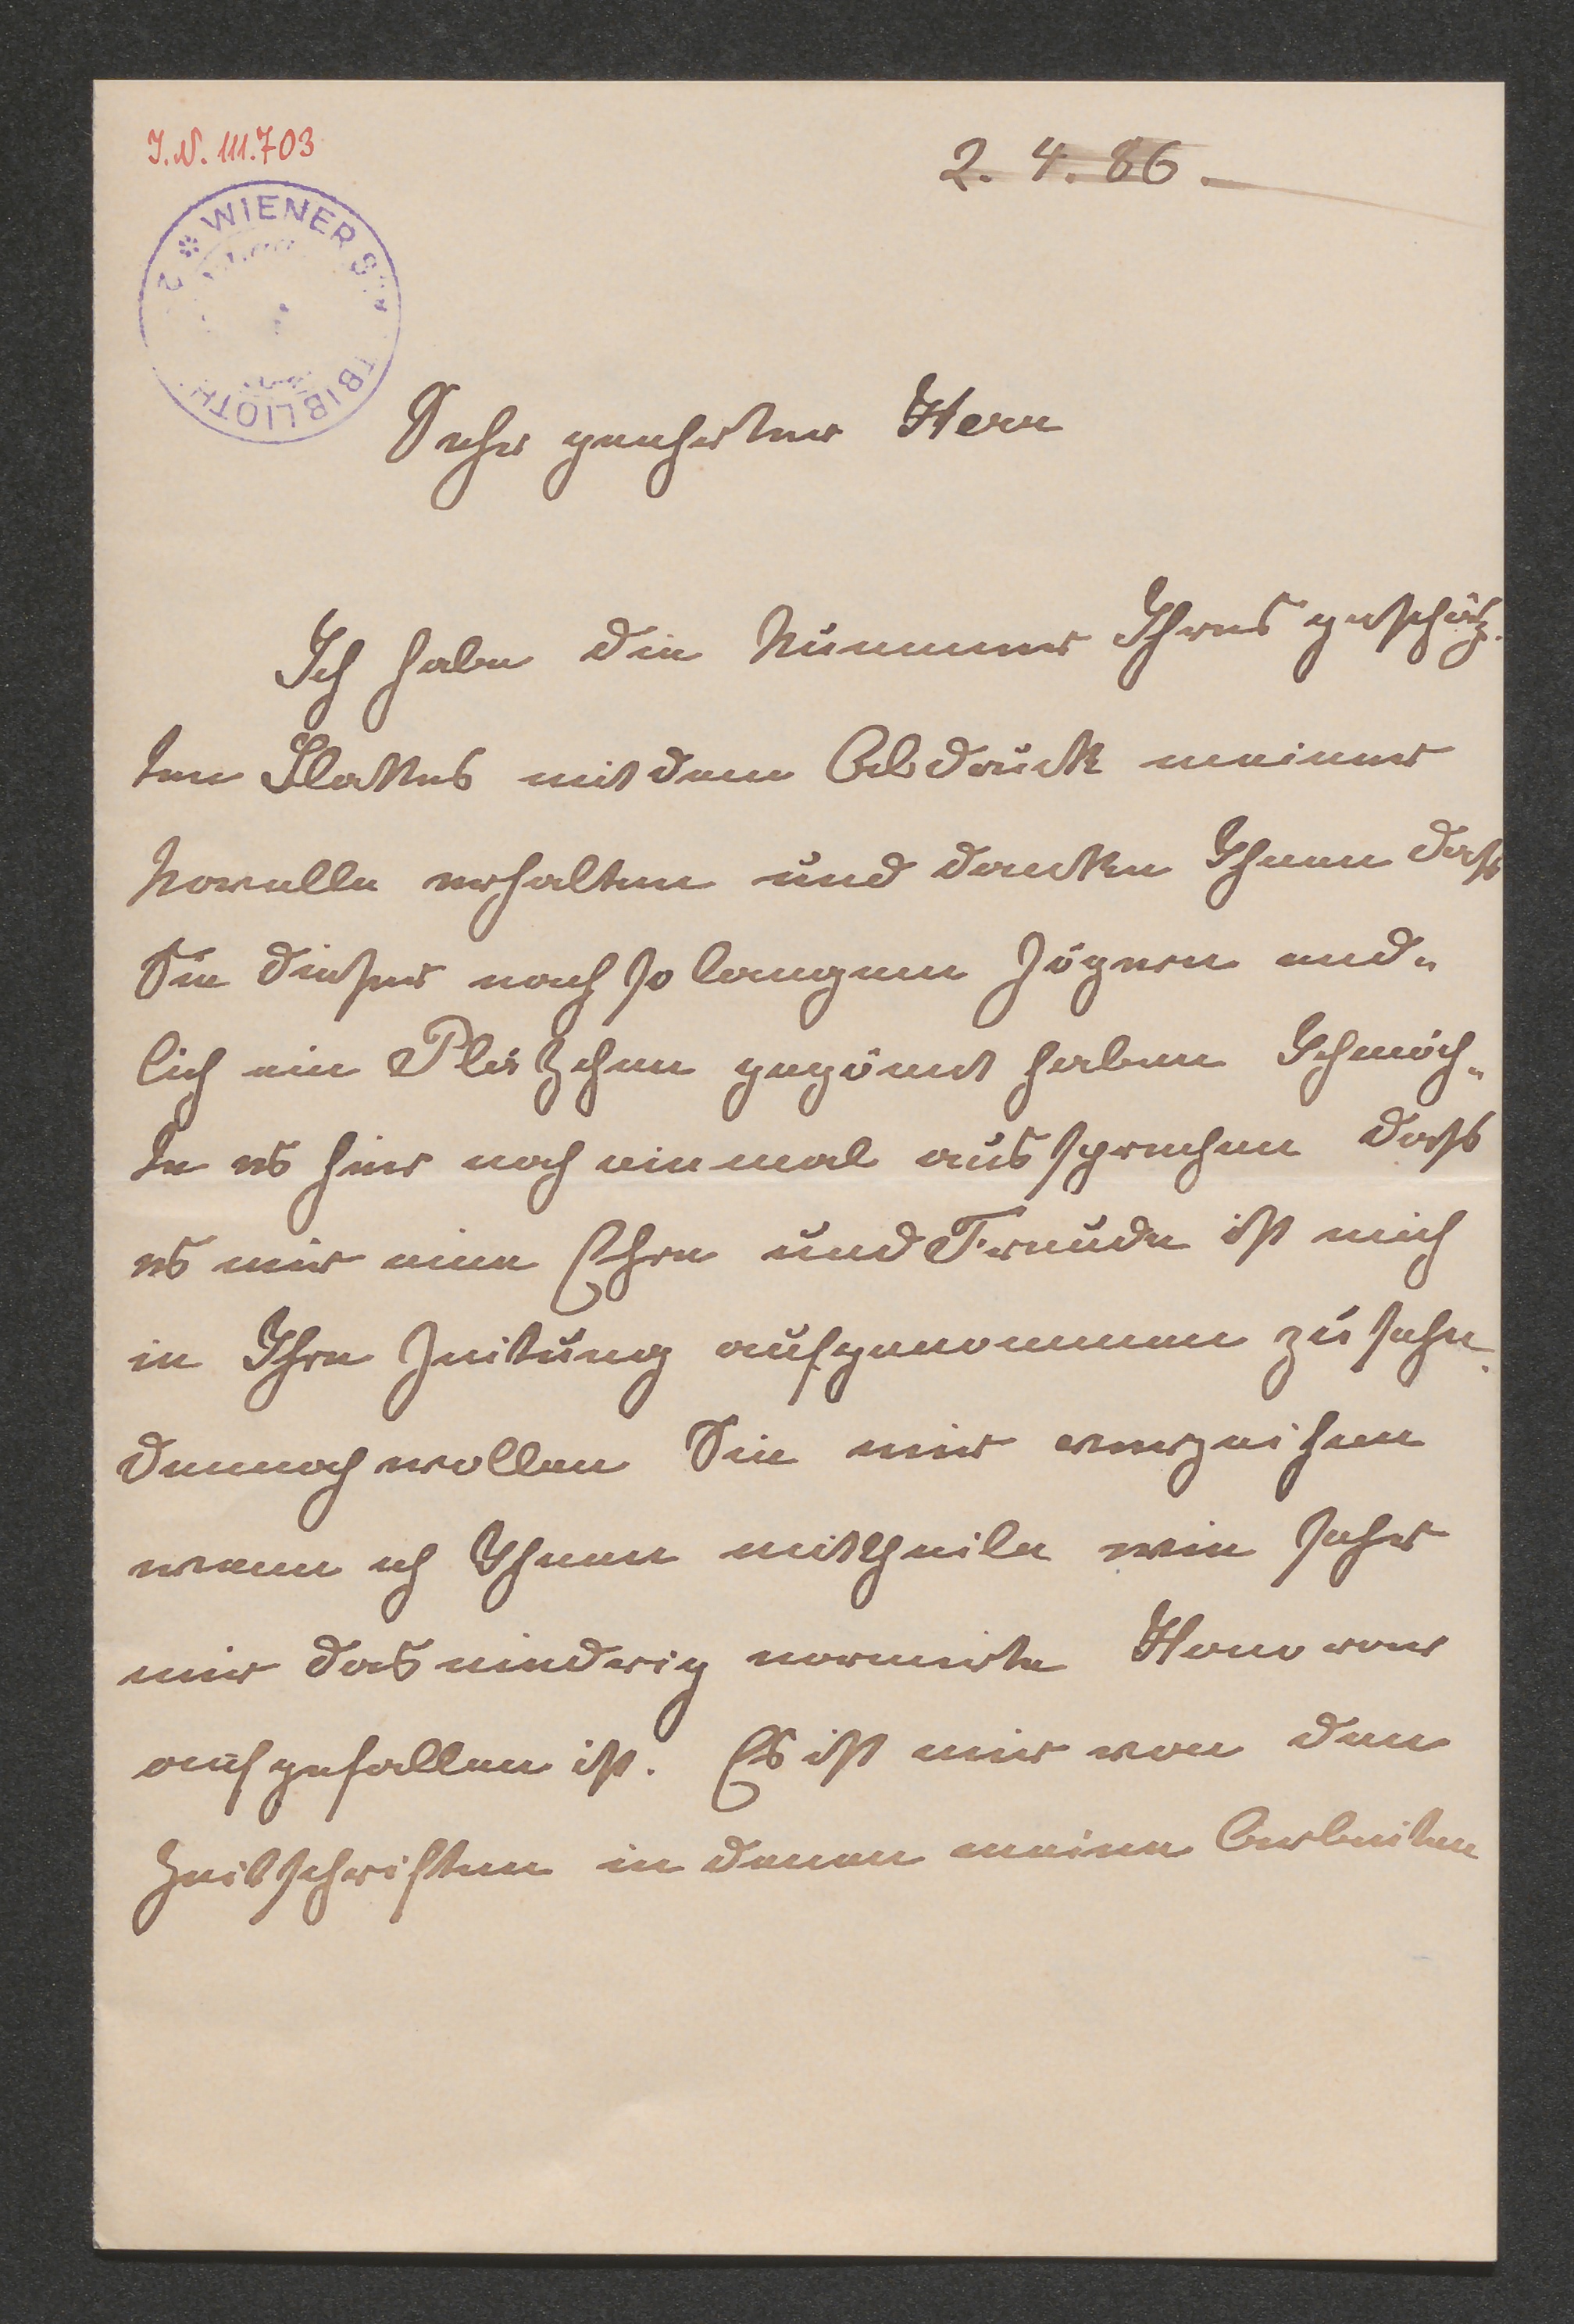 I.N. 111.703
2. 4. 86.
WIENER ST TBIBLIOTH
Sehr geehrter Herr
Ich habe die Nummer Ihres geschätz-
ten Blattes mit dem Abdruck meiner
Novelle erhalten und danke Ihnen daß
Sie dieser nach so langem Zögern end-
lich ein Pläzchen gegönnt haben Ich möch-
te es hier noch einmal aussprechen dass
es mir eine Ehre und Freude ist mich
in Ihre Zeitung aufgenommen zu sehn.
Dennoch wollen Sie mir verzeihen
wenn ich Ihnen mittheile wie sehr
mir das niedrig normirte Honorar
aufgefallen ist. Es ist mir von den
Zeitschriften in denen meine Arbeiten